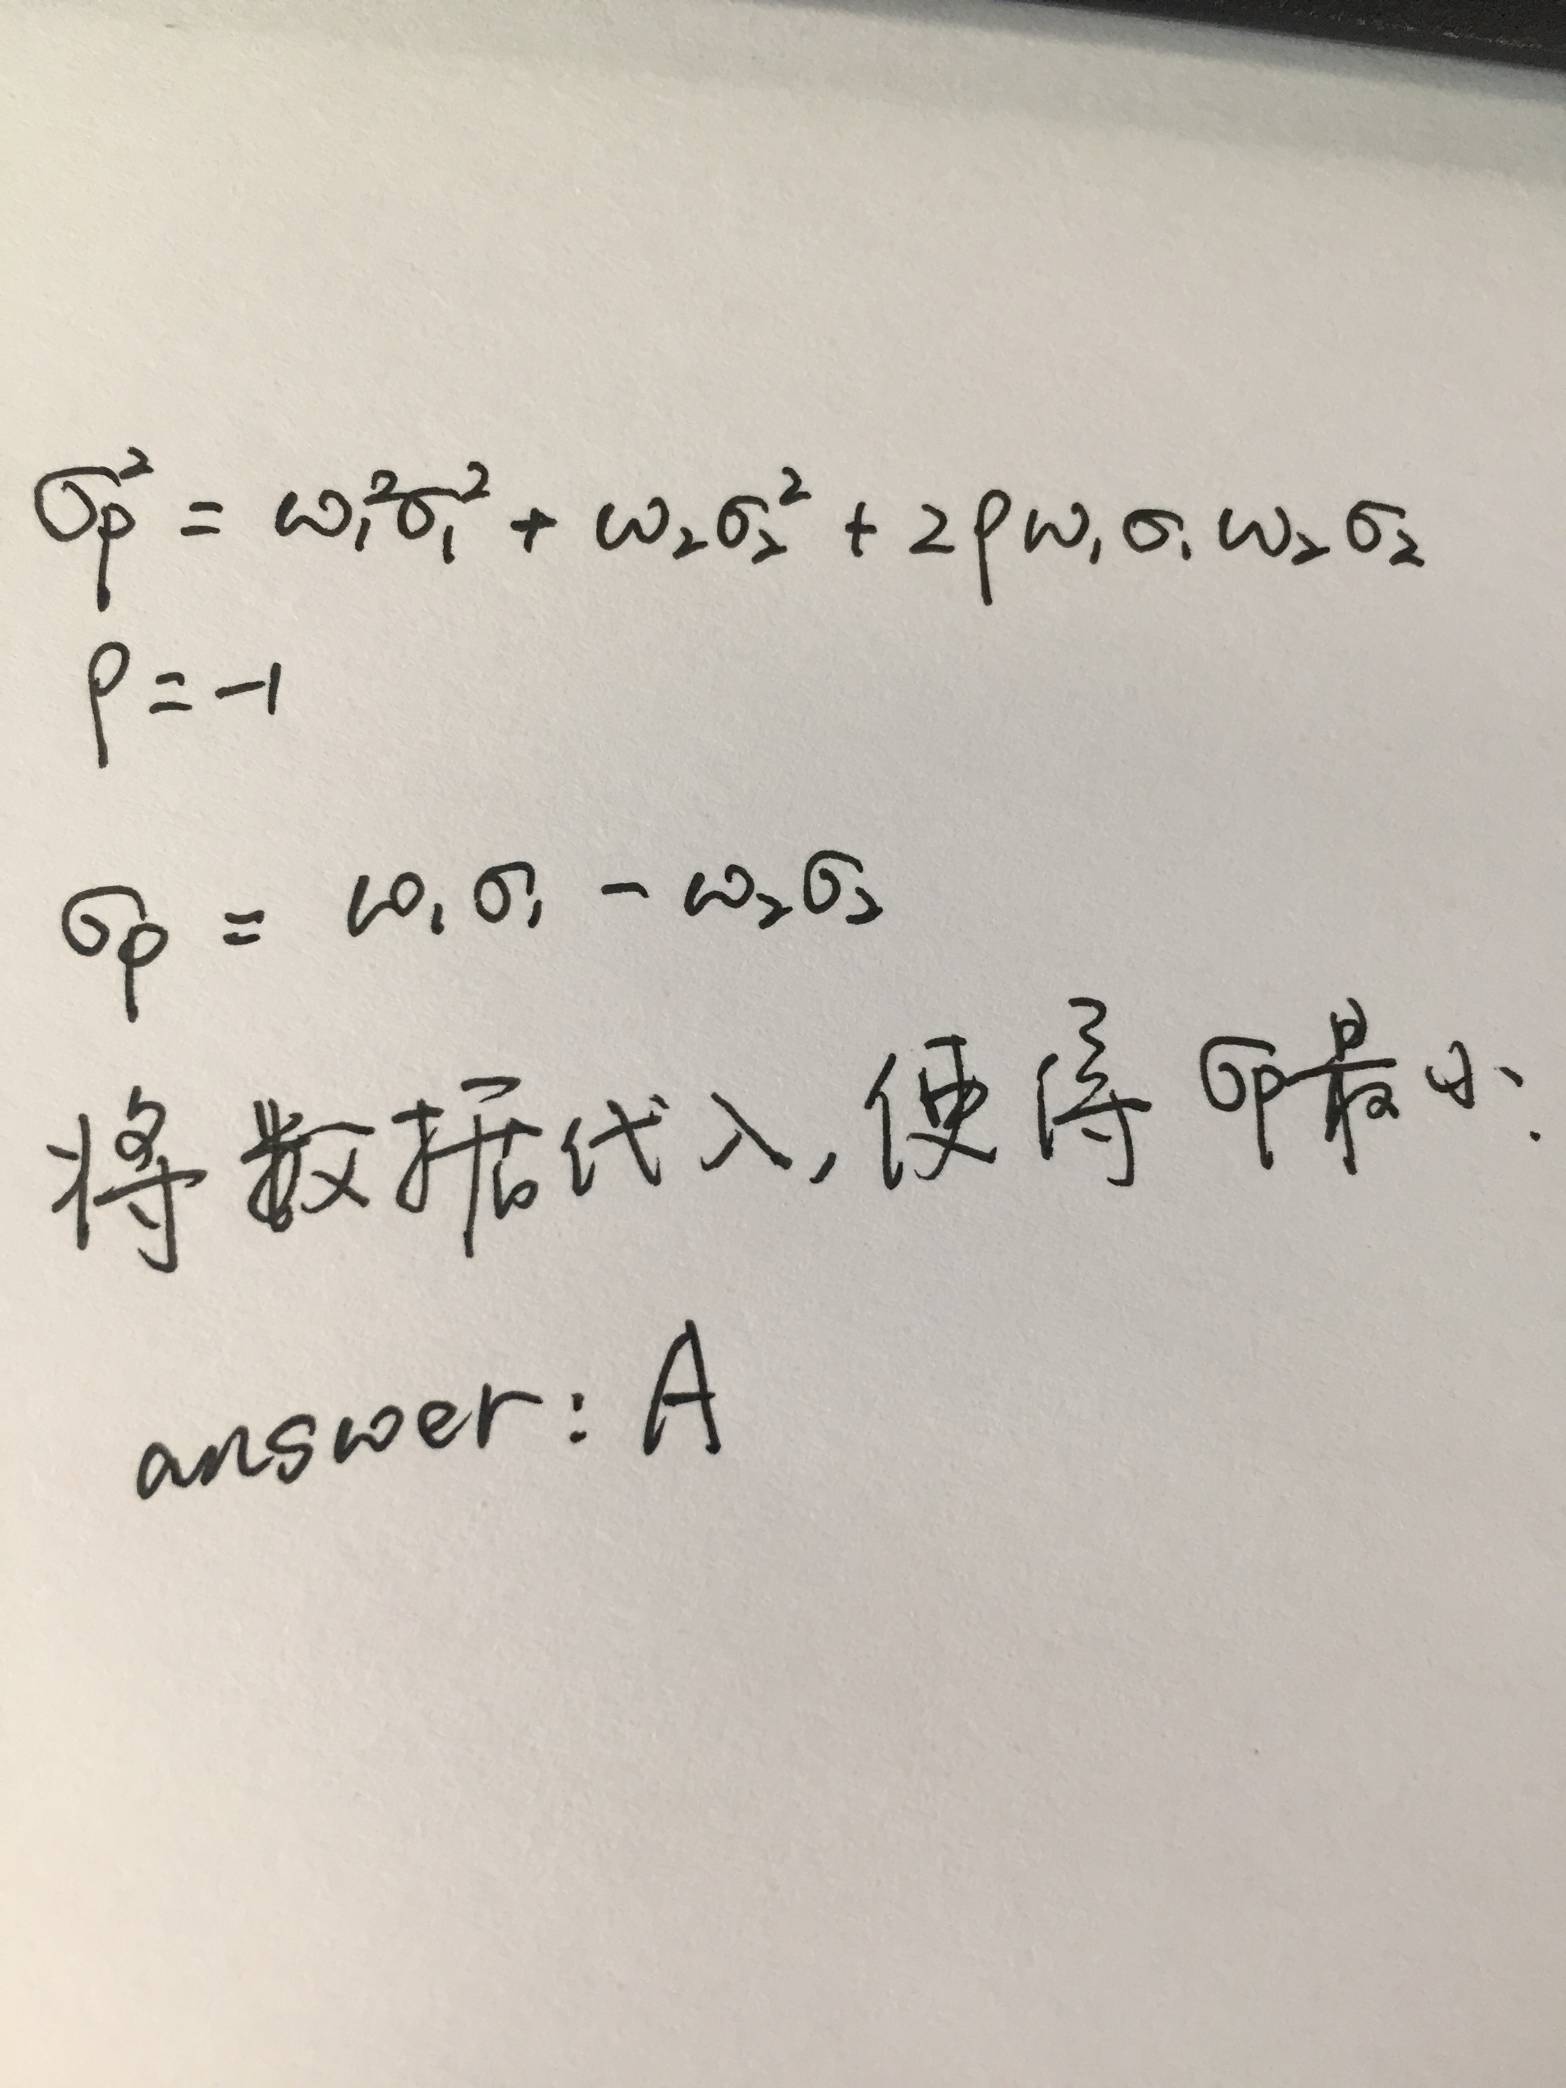 σp² = ω₁²σ₁² + ω₂σ₂² + 2ρω₁σ₁ω₂σ₂
ρ=-1
σp = ω₁σ₁ - ω₂σ₂
将数据代入,使得σp最小.
answer: A